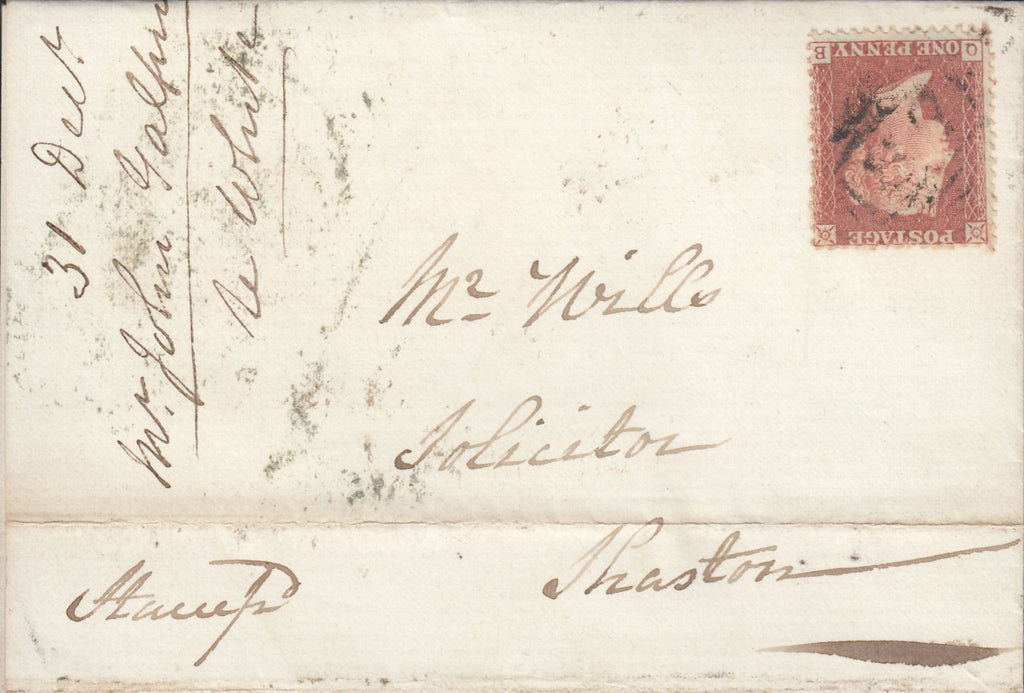 31 Decr
Mr. John Galpin
re White
Mr Wills
Solicitor
Shaston
Stamp
POSTAGE
ONE PENNY
Q B